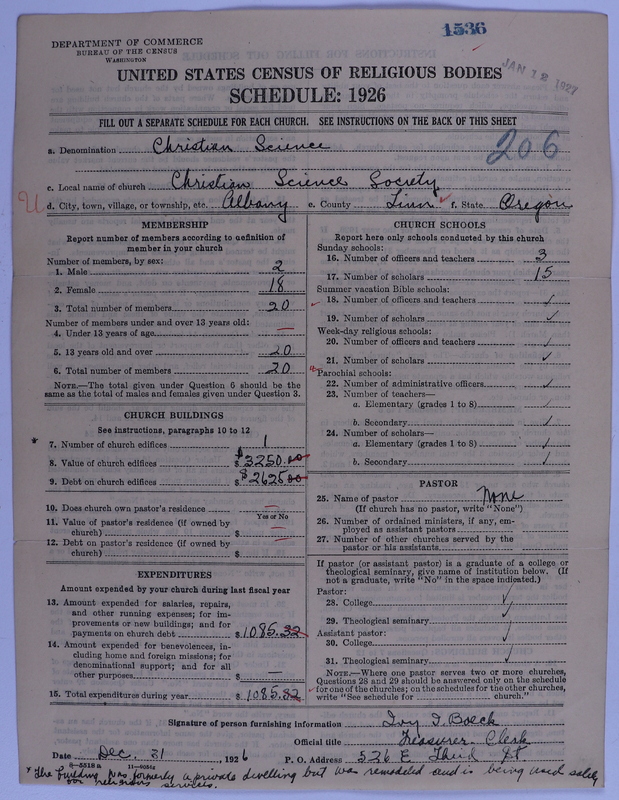 1536
DEPARTMENT OF COMMERCE
BUREAU OF THE CENSUS
WASHINGTON
JAN 12 1927
UNITED STATES CENSUS OF RELIGIOUS BODIES
SCHEDULE: 1926
FILL OUT A SEPARATE SCHEDULE FOR EACH CHURCH. SEE INSTRUCTIONS ON THE BACK OF THIS SHEET
206
a. Denomination Christian Science
c. Local name of church Christian Science Society
d. City, town, village, or township, etc. Albany e. County Linn ✓ f. State Oregon
MEMBERSHIP
Report number of members according to definition of
member in your church
Number of members, by sex:
1. Male 2
2. Female 18
3. Total number of members 20
Number of members under and over 13 years old:
4. Under 13 years of age —
5. 13 years old and over 20
6. Total number of members 20
NOTE.—The total given under Question 6 should be the
same as the total of males and females given under Question 3.
CHURCH BUILDINGS
See instructions, paragraphs 10 to 12
* 7. Number of church edifices 1
8. Value of church edifices $ $3250.00
9. Debt on church edifices $ $2625.00
10. Does church own pastor's residence —
Yes or No
11. Value of pastor's residence (if owned by
church) $ —
12. Debt on pastor's residence (if owned by
church) $ —
EXPENDITURES
Amount expended by your church during last fiscal year
13. Amount expended for salaries, repairs,
and other running expenses; for im-
provements or new buildings; and for
payments on church debt $ 1085.32
14. Amount expended for benevolences, in-
cluding home and foreign missions; for
denominational support; and for all
other purposes $ —
15. Total expenditures during year $ 1085.32
CHURCH SCHOOLS
Report here only schools conducted by this church
Sunday schools:
16. Number of officers and teachers 3
17. Number of scholars 15
Summer vacation Bible schools:
18. Number of officers and teachers ✓
19. Number of scholars ✓
Week-day religious schools:
20. Number of officers and teachers ✓
21. Number of scholars ✓
Parochial schools:
22. Number of administrative officers ✓
23. Number of teachers—
a. Elementary (grades 1 to 8) ✓
b. Secondary ✓
24. Number of scholars—
a. Elementary (grades 1 to 8) ✓
b. Secondary ✓
PASTOR
25. Name of pastor None
(If church has no pastor, write "None")
26. Number of ordained ministers, if any, em-
ployed as assistant pastors
27. Number of other churches served by the
pastor or his assistants
If pastor (or assistant pastor) is a graduate of a college or
theological seminary, give name of institution below. (If
not a graduate, write "No" in the space indicated.)
Pastor:
28. College ✓
29. Theological seminary ✓
Assistant pastor:
30. College ✓
31. Theological seminary ✓
NOTE.—Where one pastor serves two or more churches,
Questions 28 and 29 should be answered only on the schedule
for one of the churches; on the schedules for the other churches,
write "See schedule for church."
Signature of person furnishing information Ivy I. Boeck
Official title Treasurer-Clerk
Date Dec. 31, 1926 P. O. Address 526 E. Third St.
8—5518 a
* The building was formerly a private dwelling but was remodeled and is being used solely
for religious services.